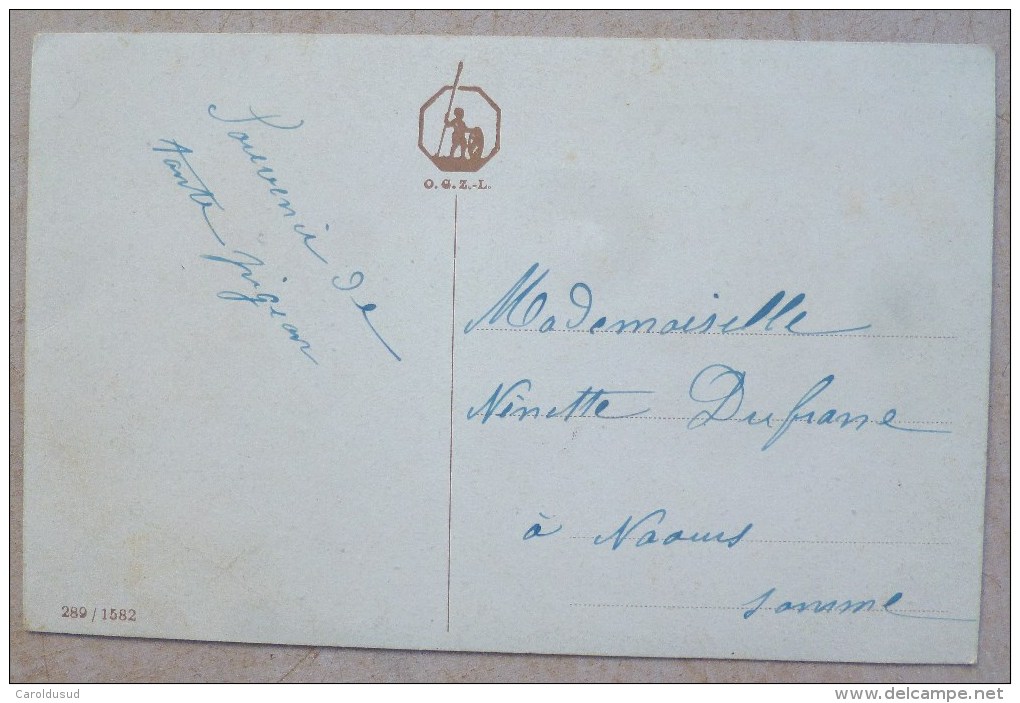 Souvenir de
tante pigeon
O. G. Z.-L.
Mademoiselle
Ninette Dufrane
à Naours
somme
289 / 1582
Caroldusud
www.delcampe.net